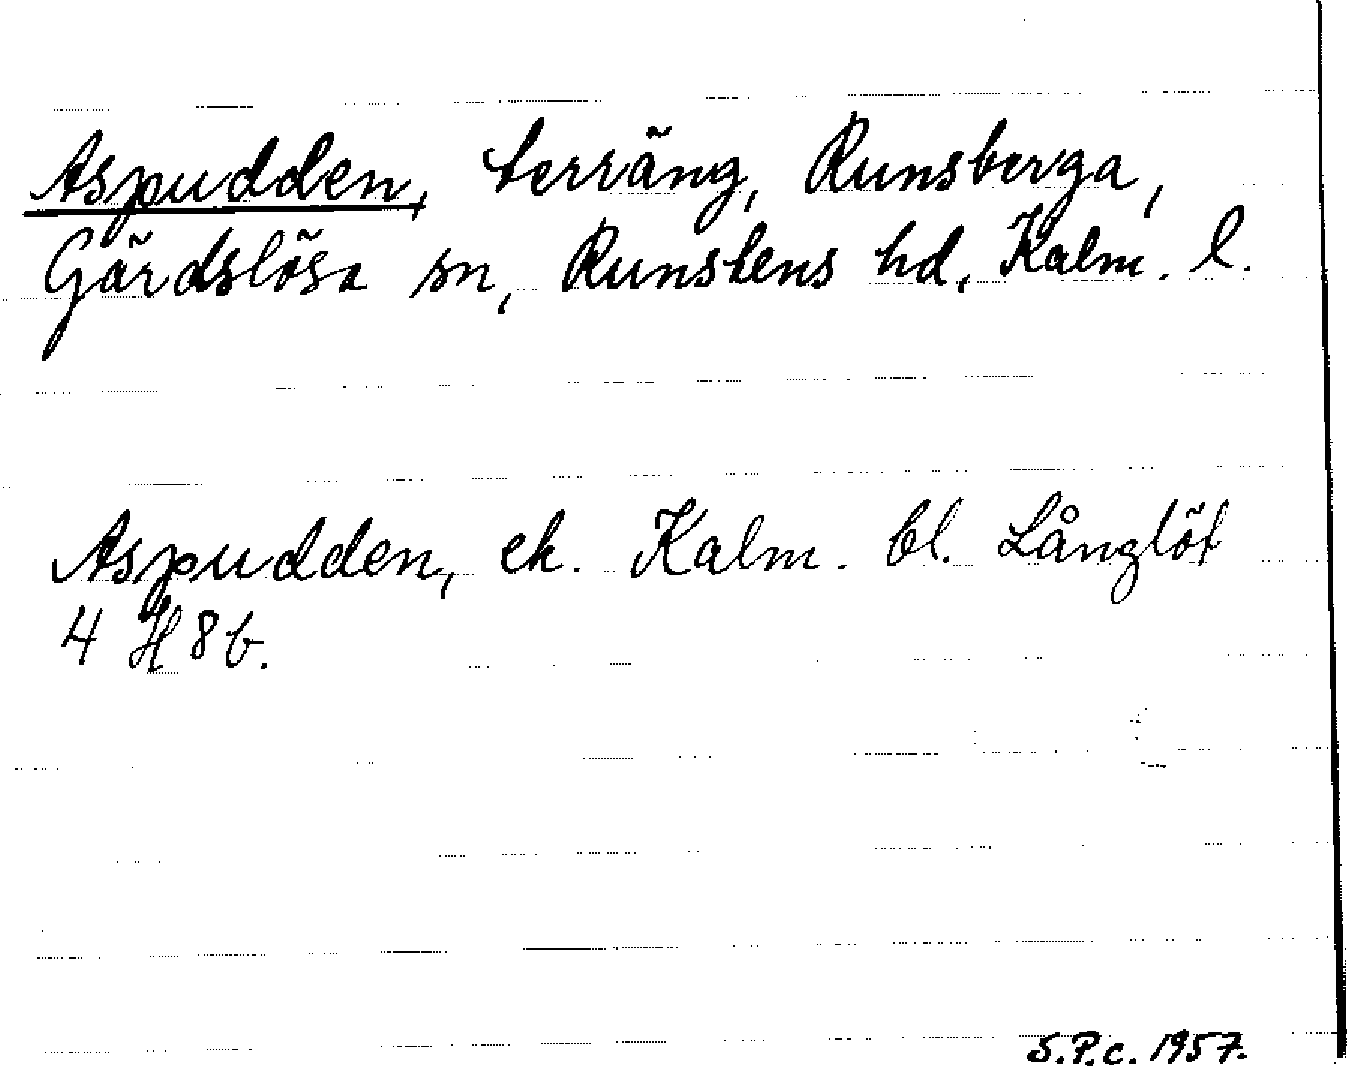 Aspudden, terräng, Runsberga,
Gärdslösa sn, Runstens hd, Kalm. l.
Aspudden, ek. Kalm. bl. Långlöt
4 H 8 b.
S.P.c. 1957.